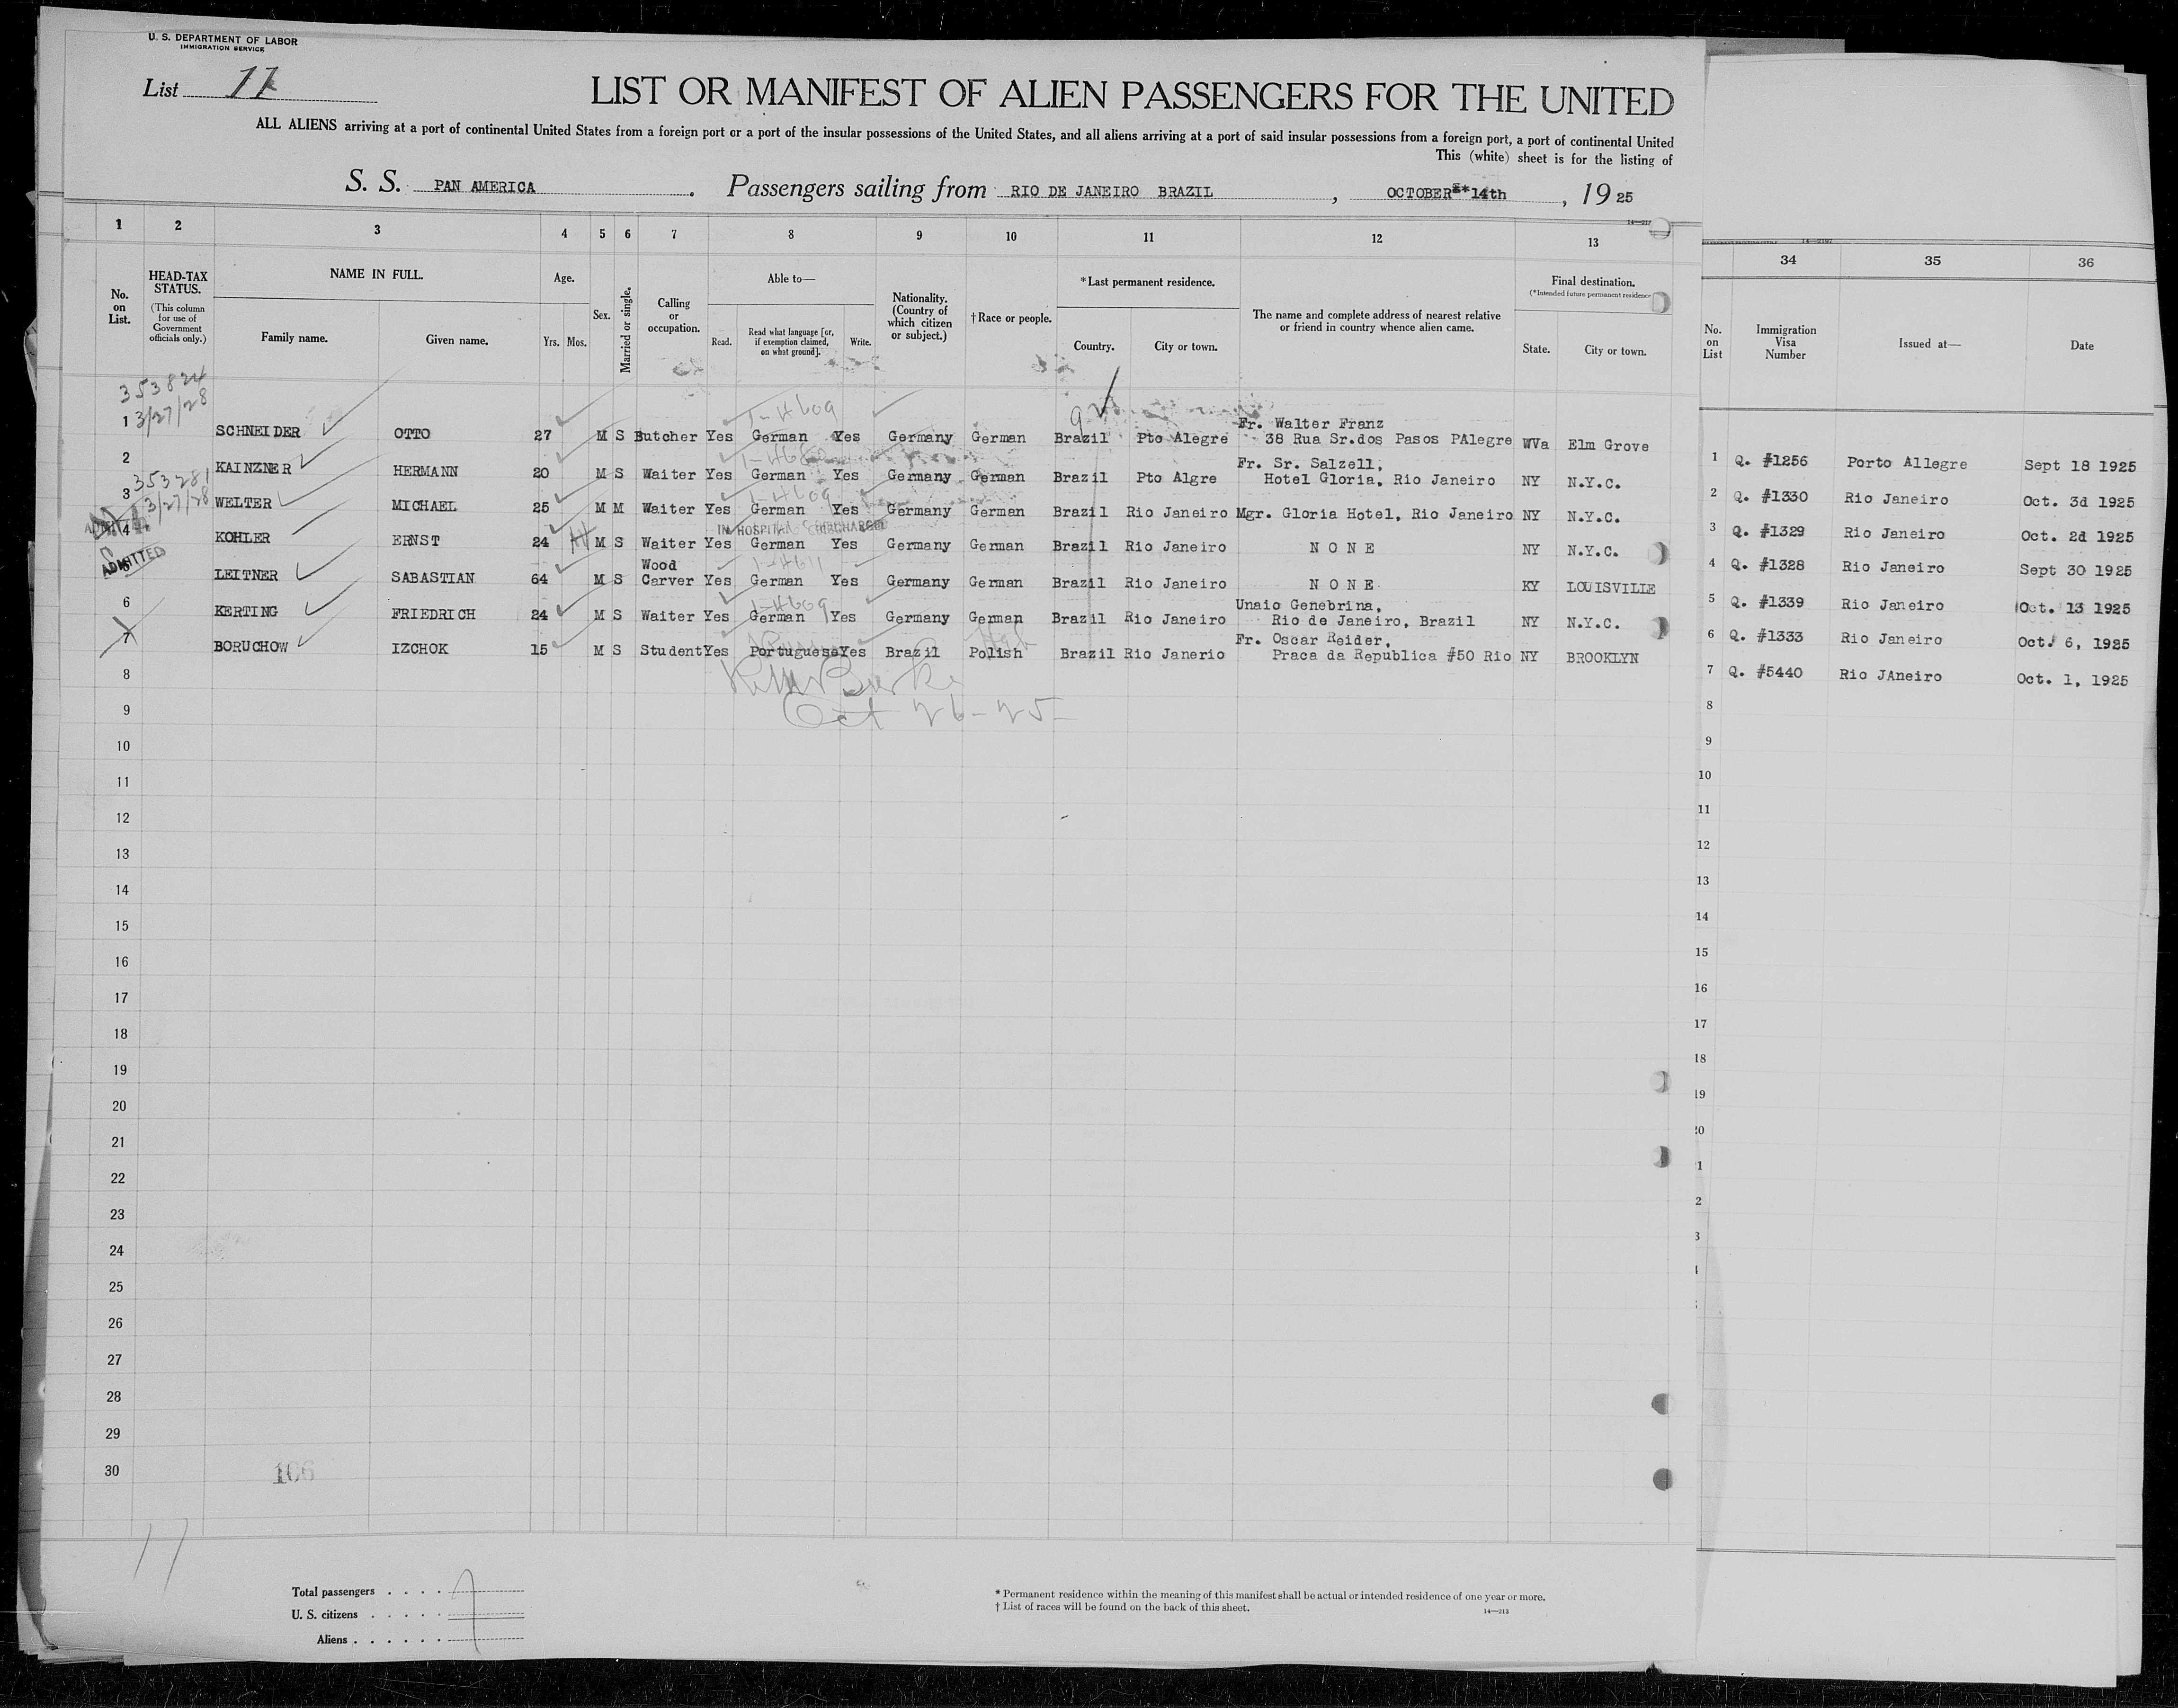 U. S. DEPARTMENT OF LABOR
IMMIGRATION SERVICE
List 11
LIST OR MANIFEST OF ALIEN PASSENGERS FOR THE UNITED
ALL ALIENS arriving at a port of continental United States from a foreign port or a port of the insular possessions of the United States, and all aliens arriving at a port of said insular possessions from a foreign port, a port of continental United
This (white) sheet is for the listing of
S. S. PAN AMERICA. Passengers sailing from RIO DE JANEIRO BRAZIL, OCTOBER 14th, 1925
1 2 3 4 5 6 7 8 9 10 11 12 13
34 35 36
No. on List.
HEAD-TAX STATUS.
(This column for use of Government officials only.)
NAME IN FULL.
Family name. Given name.
Age.
Yrs. Mos.
Sex.
Married or single.
Calling or occupation.
Able to—
Read. Read what language [or, if exemption claimed, on what ground]. Write.
Nationality. (Country of which citizen or subject.)
†Race or people.
*Last permanent residence.
Country. City or town.
The name and complete address of nearest relative or friend in country whence alien came.
Final destination.
(*Intended future permanent residence
State. City or town.
No. on List
Immigration Visa Number
Issued at—
Date
353824
3/27/28
1-4609
Fr. Walter Franz
1 SCHNEIDER OTTO 27 M S Butcher Yes German Yes Germany German Brazil Pto Alegre 38 Rua Sr.dos Pasos PAlegre WVa Elm Grove
Fr. Sr. Salzell,
2 KAINZNER HERMANN 20 M S Waiter Yes German Yes Germany German Brazil Pto Algre Hotel Gloria, Rio Janeiro NY N.Y.C.
353281
3/27/28
1-4609
3 WELTER MICHAEL 25 M M Waiter Yes German Yes Germany German Brazil Rio Janeiro Mgr. Gloria Hotel, Rio Janeiro NY N.Y.C.
IN HOSPITAL DISCHARGED
4 KOHLER ERNST 24 M S Waiter Yes German Yes Germany German Brazil Rio Janeiro N O N E NY N.Y.C.
ADMITTED
1-4611
Wood
5 LEITNER SABASTIAN 64 M S Carver Yes German Yes Germany German Brazil Rio Janeiro N O N E KY LOUISVILLE
1-4609
Unaio Genebrina,
6 KERTING FRIEDRICH 24 M S Waiter Yes German Yes Germany German Brazil Rio Janeiro Rio de Janeiro, Brazil NY N.Y.C.
Fr. Oscar Reider,
7 BORUCHOW IZCHOK 15 M S Student Yes Portuguese Yes Brazil Polish Brazil Rio Janerio Praca da Republica #50 Rio NY BROOKLYN
Oct 26-25
1 Q. #1256 Porto Allegre Sept 18 1925
2 Q. #1330 Rio Janeiro Oct. 3d 1925
3 Q. #1329 Rio Janeiro Oct. 2d 1925
4 Q. #1328 Rio Janeiro Sept 30 1925
5 Q. #1339 Rio Janeiro Oct. 13 1925
6 Q. #1333 Rio Janeiro Oct. 6, 1925
7 Q. #5440 Rio JAneiro Oct. 1, 1925
8
9
10
11
12
13
14
15
16
17
18
19
20
21
22
23
24
25
26
27
28
29
30
106
17
Total passengers . . . . 7
U. S. citizens . . . . .
Aliens . . . . . .
* Permanent residence within the meaning of this manifest shall be actual or intended residence of one year or more.
† List of races will be found on the back of this sheet.
14—213